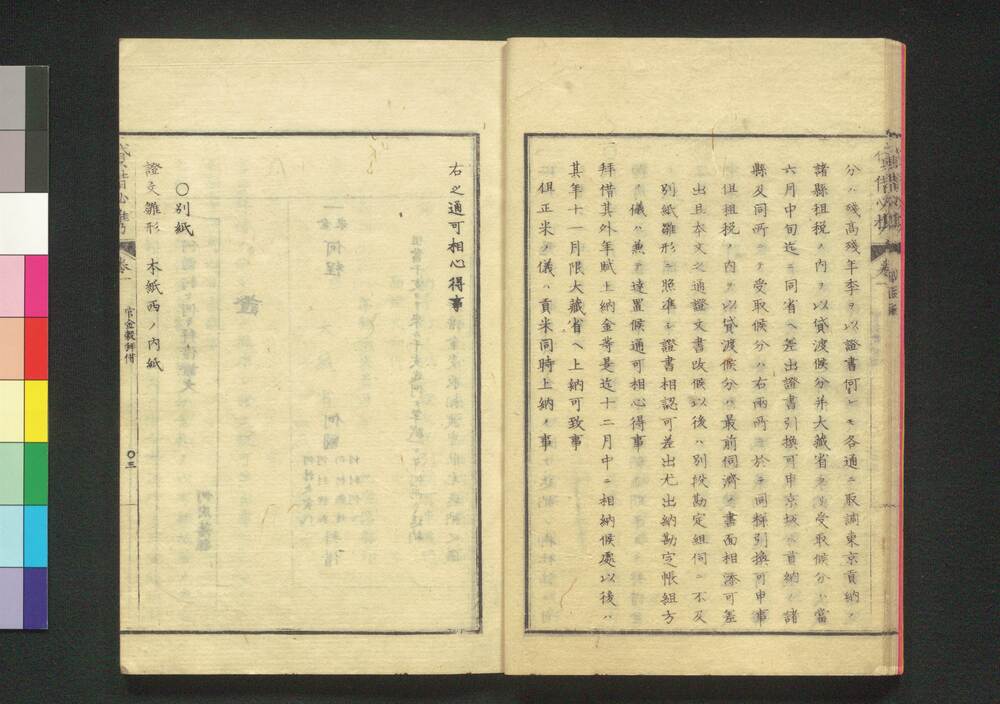 分ハ殘高殘年季ヲ以證書何レモ各通ニ取調東京貢納ノ
諸縣租税ノ內ヲ以貸渡候分并大藏省ヨリ受取候分ハ當
六月中旬迄ニ同省ヘ差出證書引換可申京坂ヘ貢納ノ諸
縣及同所ニテ受取候分ハ右兩所ニ於テ同樣引換可申事
但租税ノ內ヲ以貸渡候分ハ最前伺濟ノ書面相添可差
出且本文之通證文書改候以後ハ別段勘定組伺ニ不及
別紙雛形ニ照準シ證書相認可差出尤出納勘定帳組方
ノ儀ハ兼テ達置候通可相心得事
拜借其外年賦上納金等是迄十二月中ニ相納候處以後ハ
其年十一月限大藏省ヘ上納可致事
但正米ノ儀ハ貢米同時上納ノ事
右之通可相心得事
卷一
官金穀拜借
〇三
〇別紙
證文雛形 本紙西ノ內紙